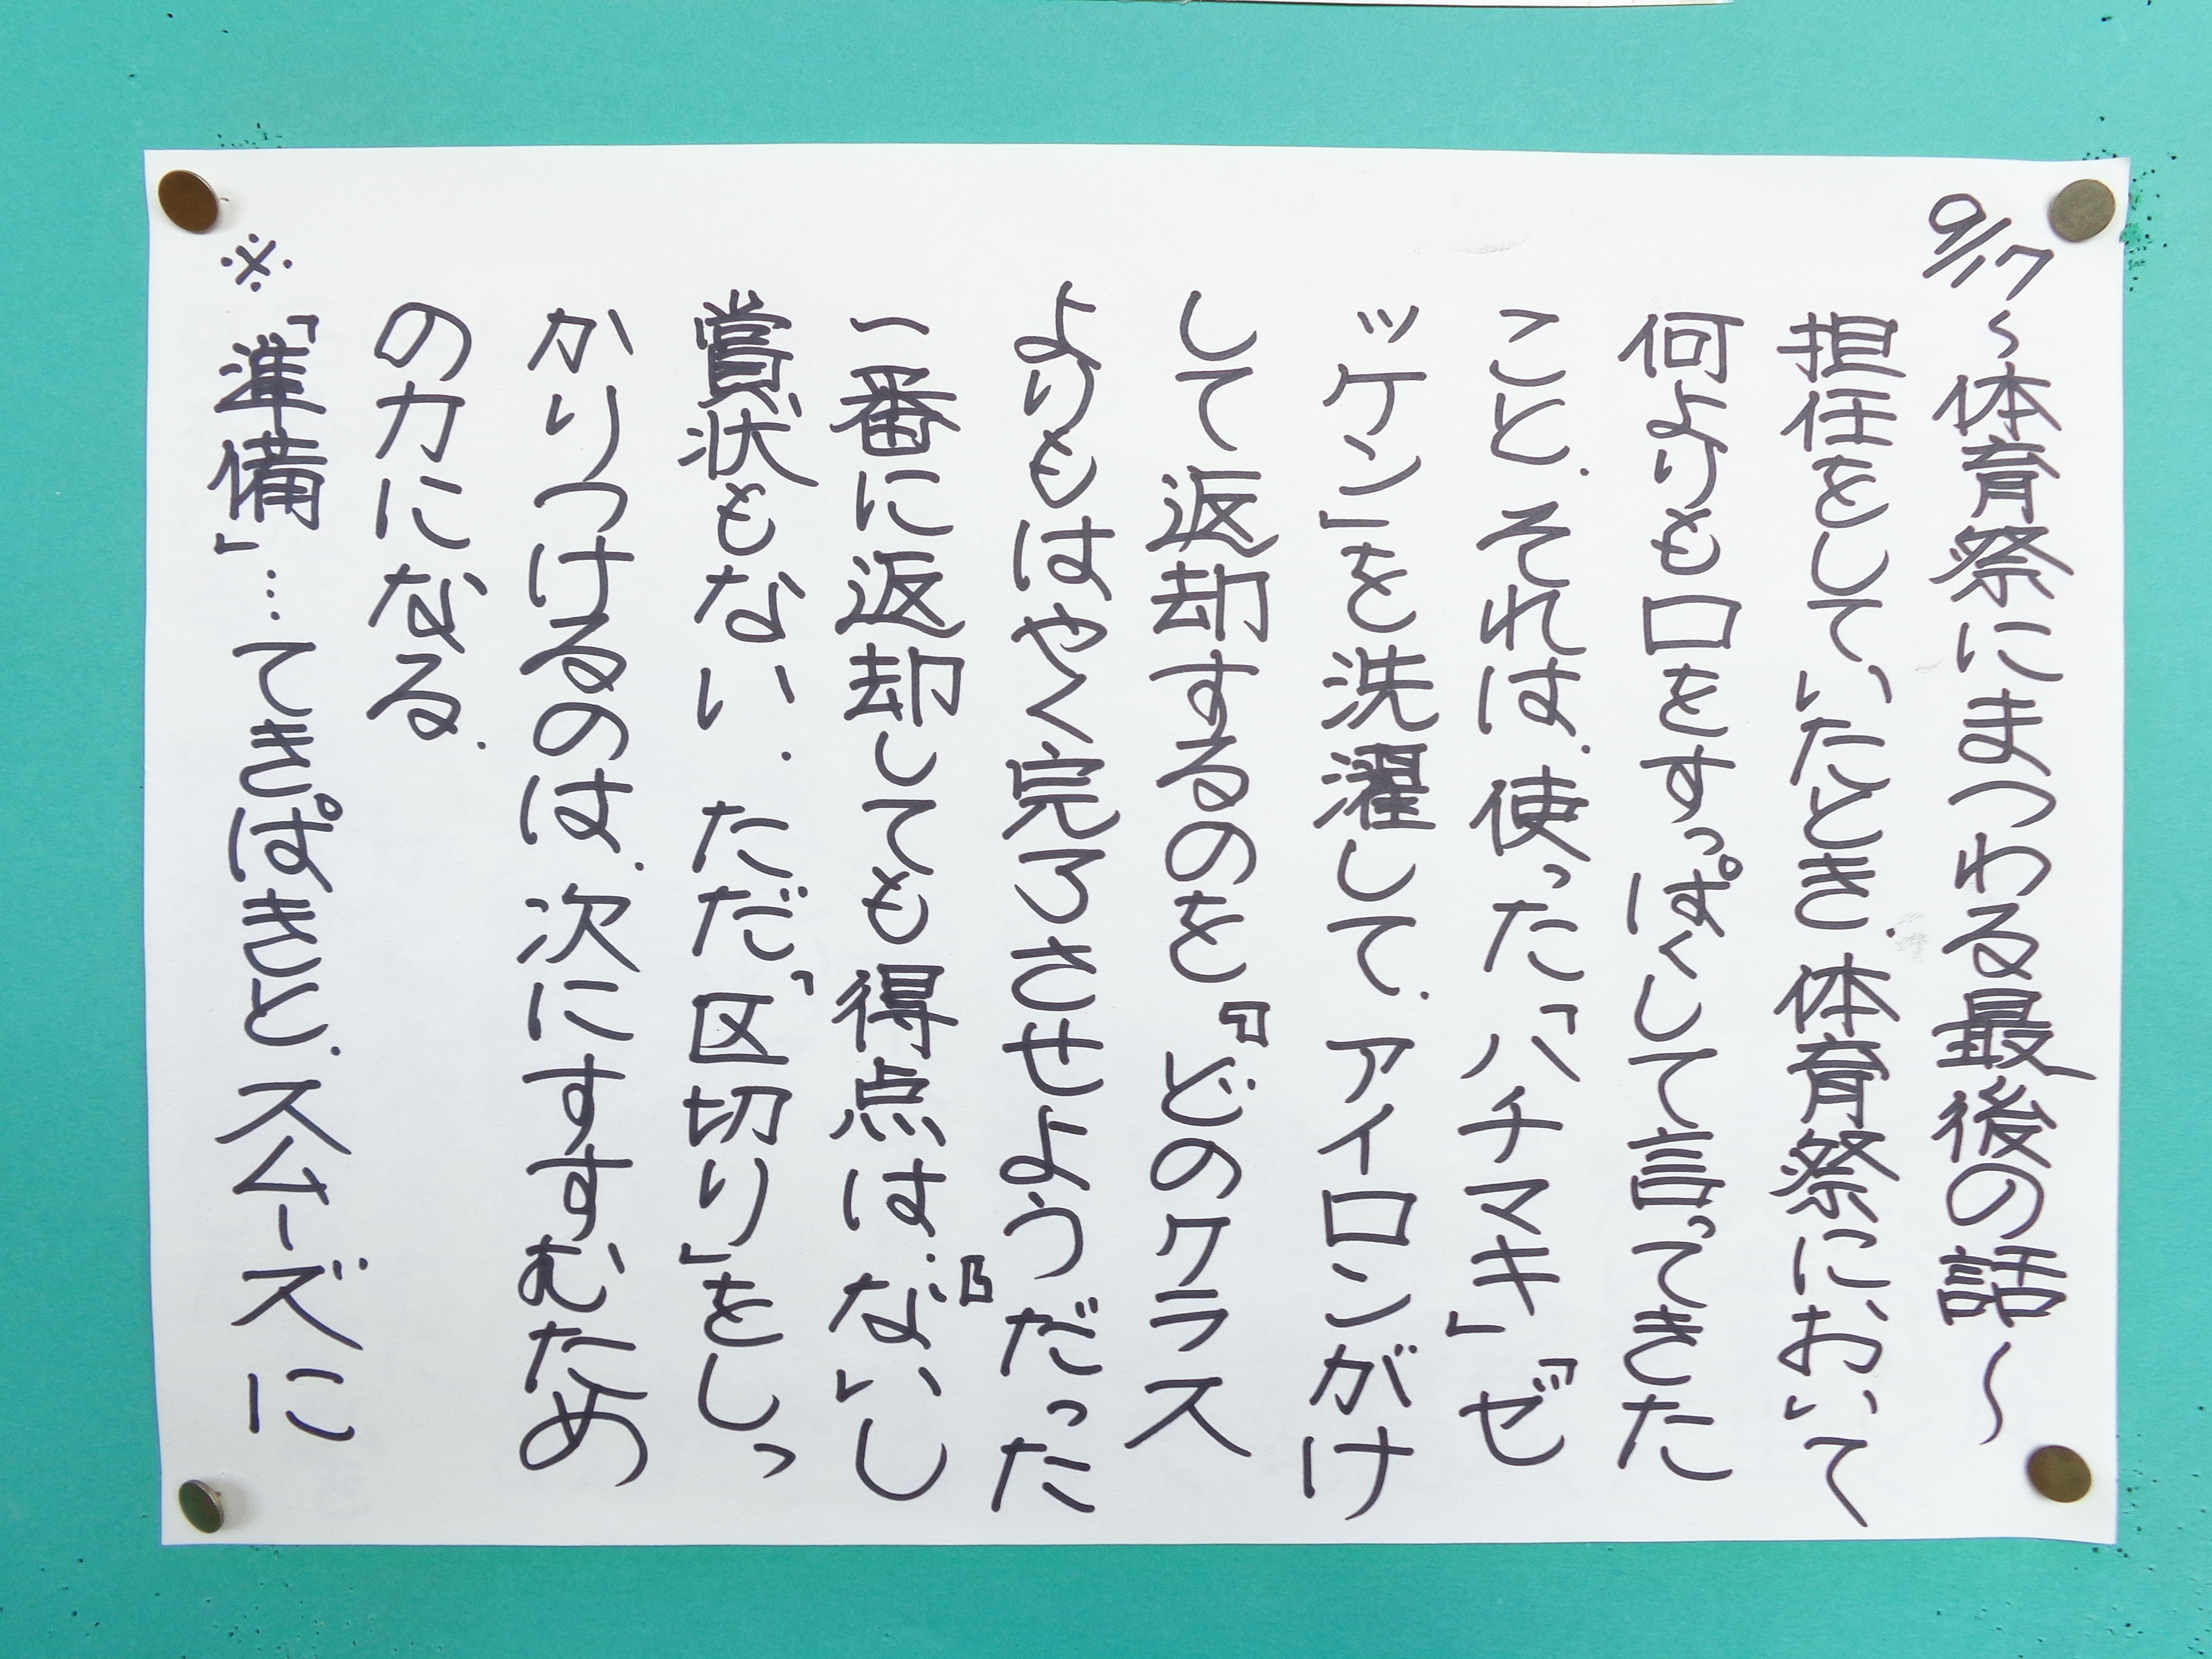 9/17〜体育祭にまつわる最後の話〜
担任をしていたとき、体育祭において
何よりも口をすっぱくして言ってきた
こと、それは、使った「ハチマキ」「ゼ
ッケン」を洗濯して、アイロンがけ
して返却するのを『どのクラス
よりもはやく完了させようだった
一番に返却しても得点は、ないし』
賞状もない。ただ「区切り」をしっ
かりつけるのは、次にすすむため
の力になる。
※「準備」…てきぱきと、スムーズに